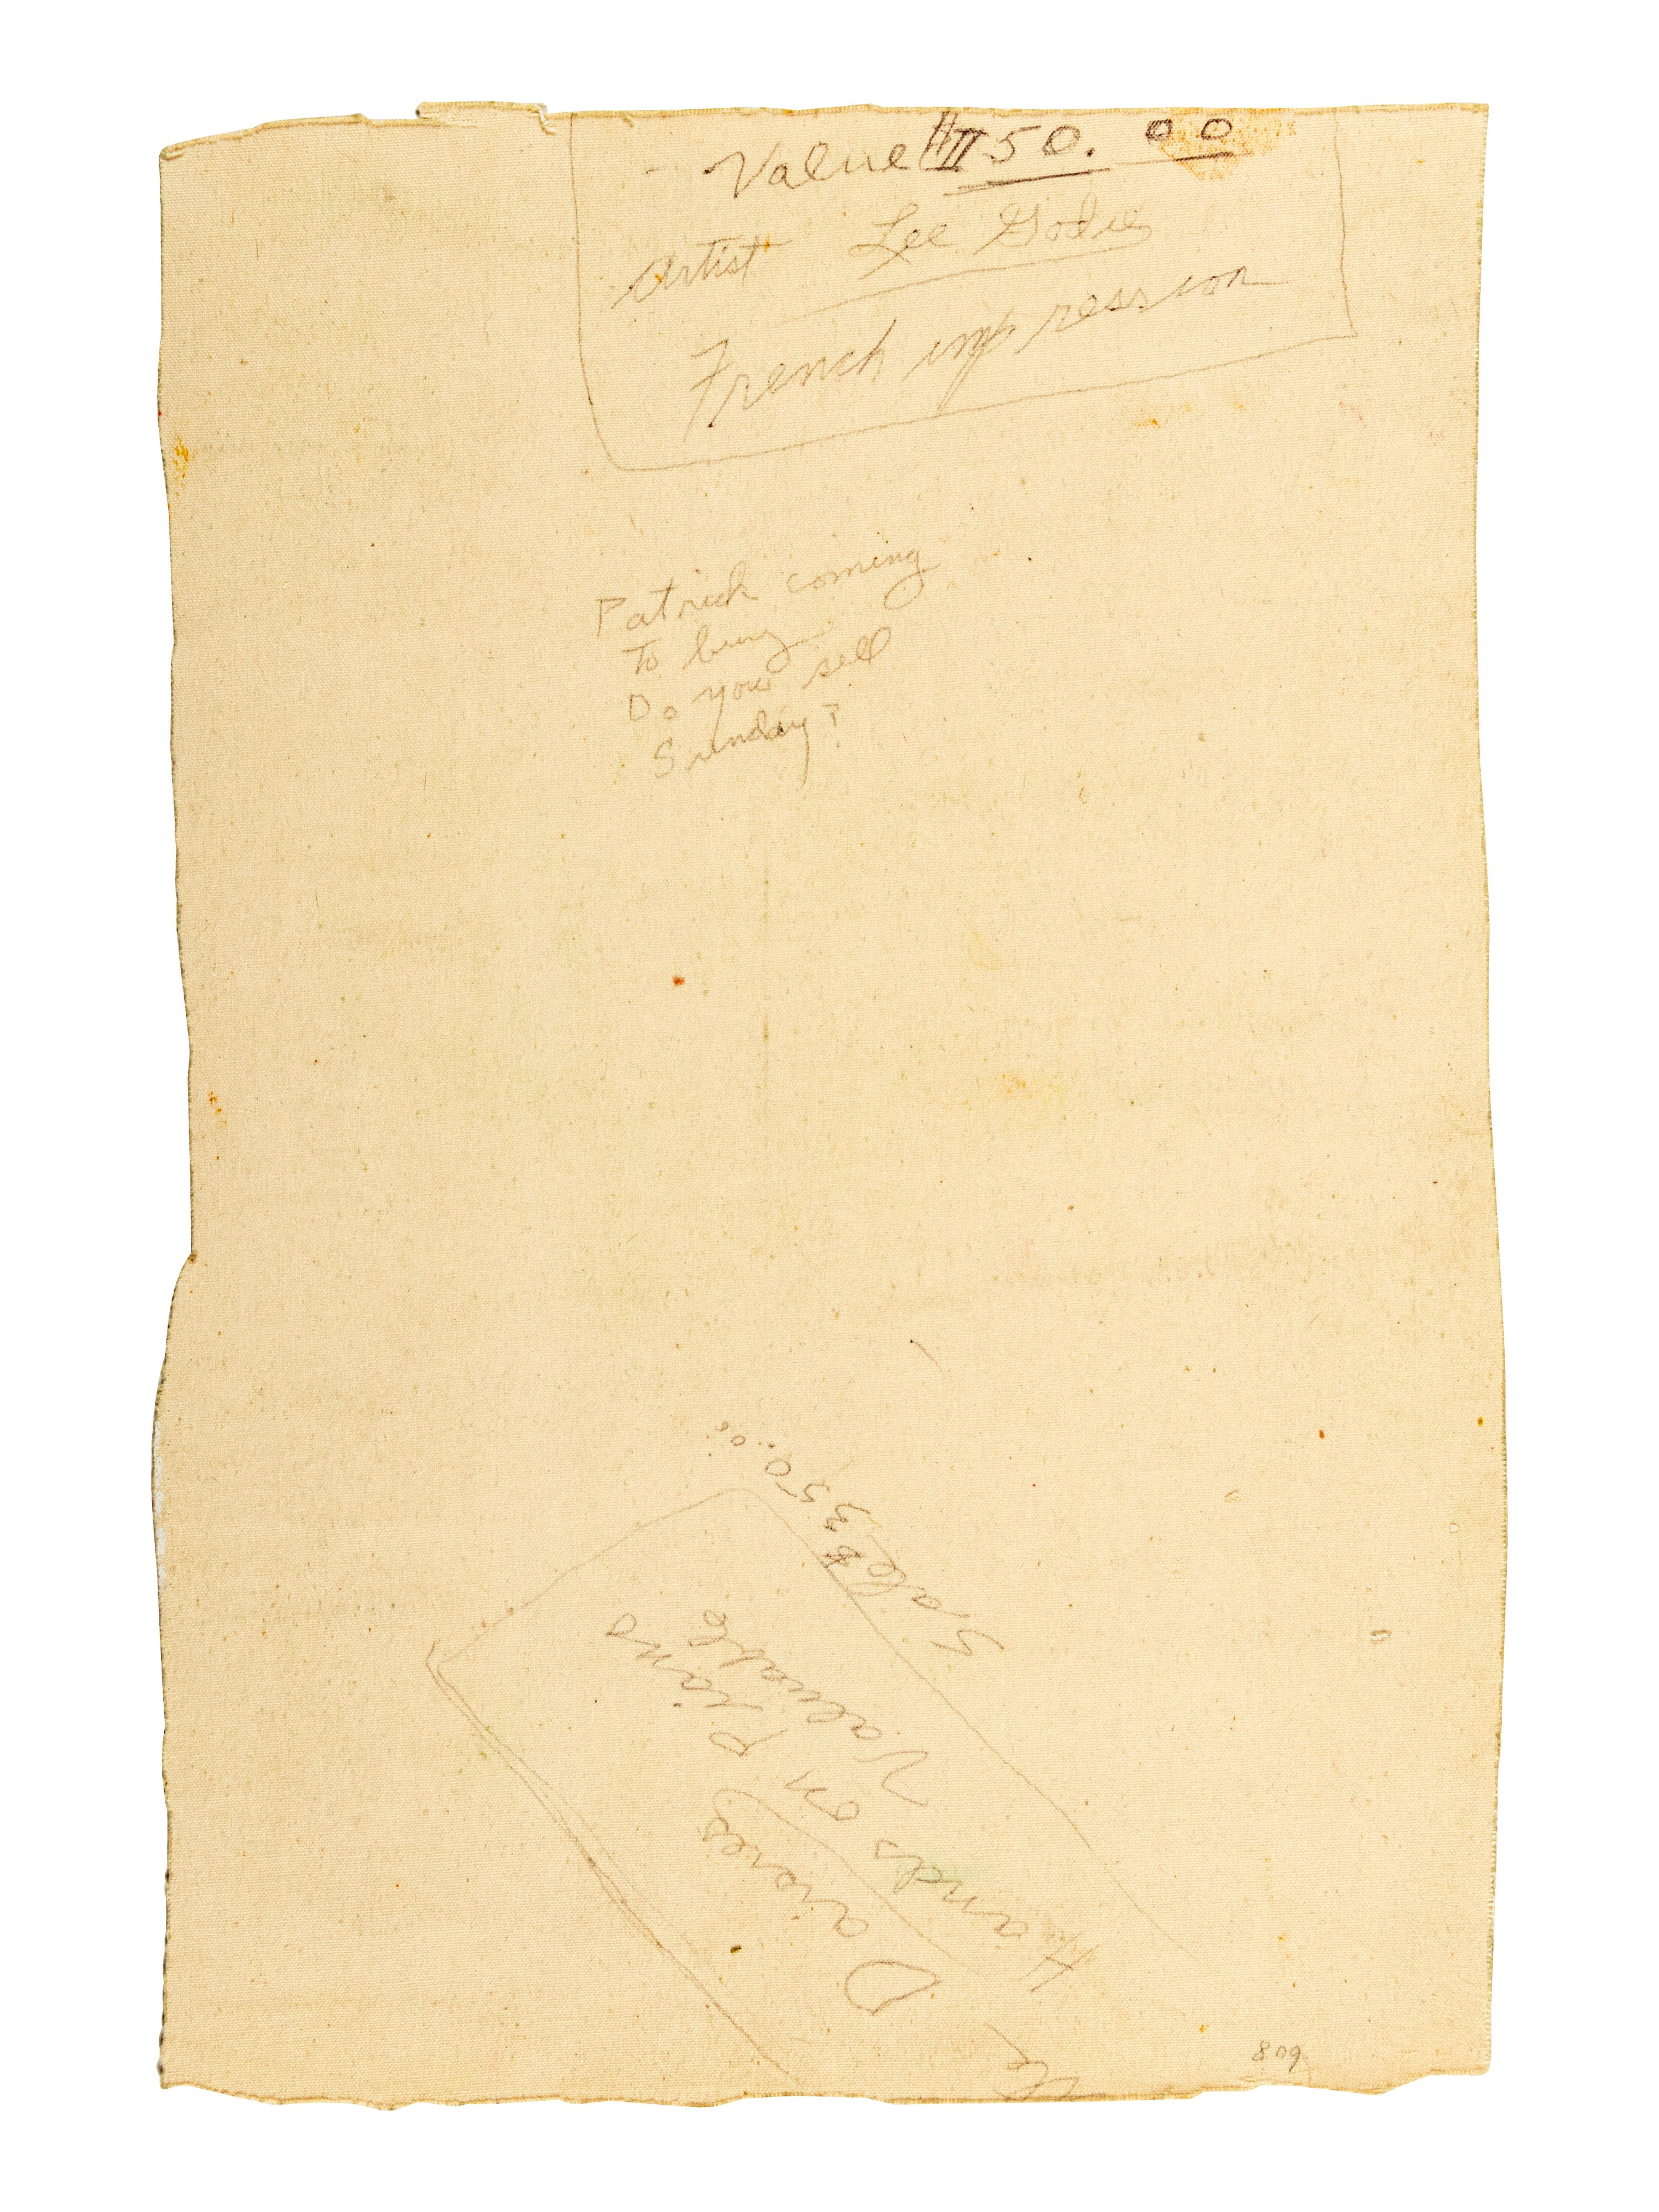 Value $50.00
Artist Lee Godie
French impression
Patrick coming
To buy
Do you sell
Sunday?
Sale $350.00
Hands on Valuable
Piano
809